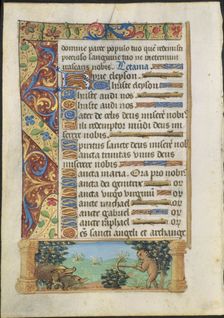 domine parce populo tuo que redemisti
precioso sanguine tuo ne in eternum
nobis. Letania
yrie eleyson
hriste eleyson
hriste audi nos
hriste audi nos
ater de celis deus misere nobis
ili redemptor mundi deus
piritus sancte deus misere nob
ancta trinitas unus deus
miserere nobis
ancta maria. Ora pro nobis
ancta dei genitrix or
ancta virgo virginu or
ancte michael or
ancte gabriel or
ancte raphael or
es sancti angeli et archange